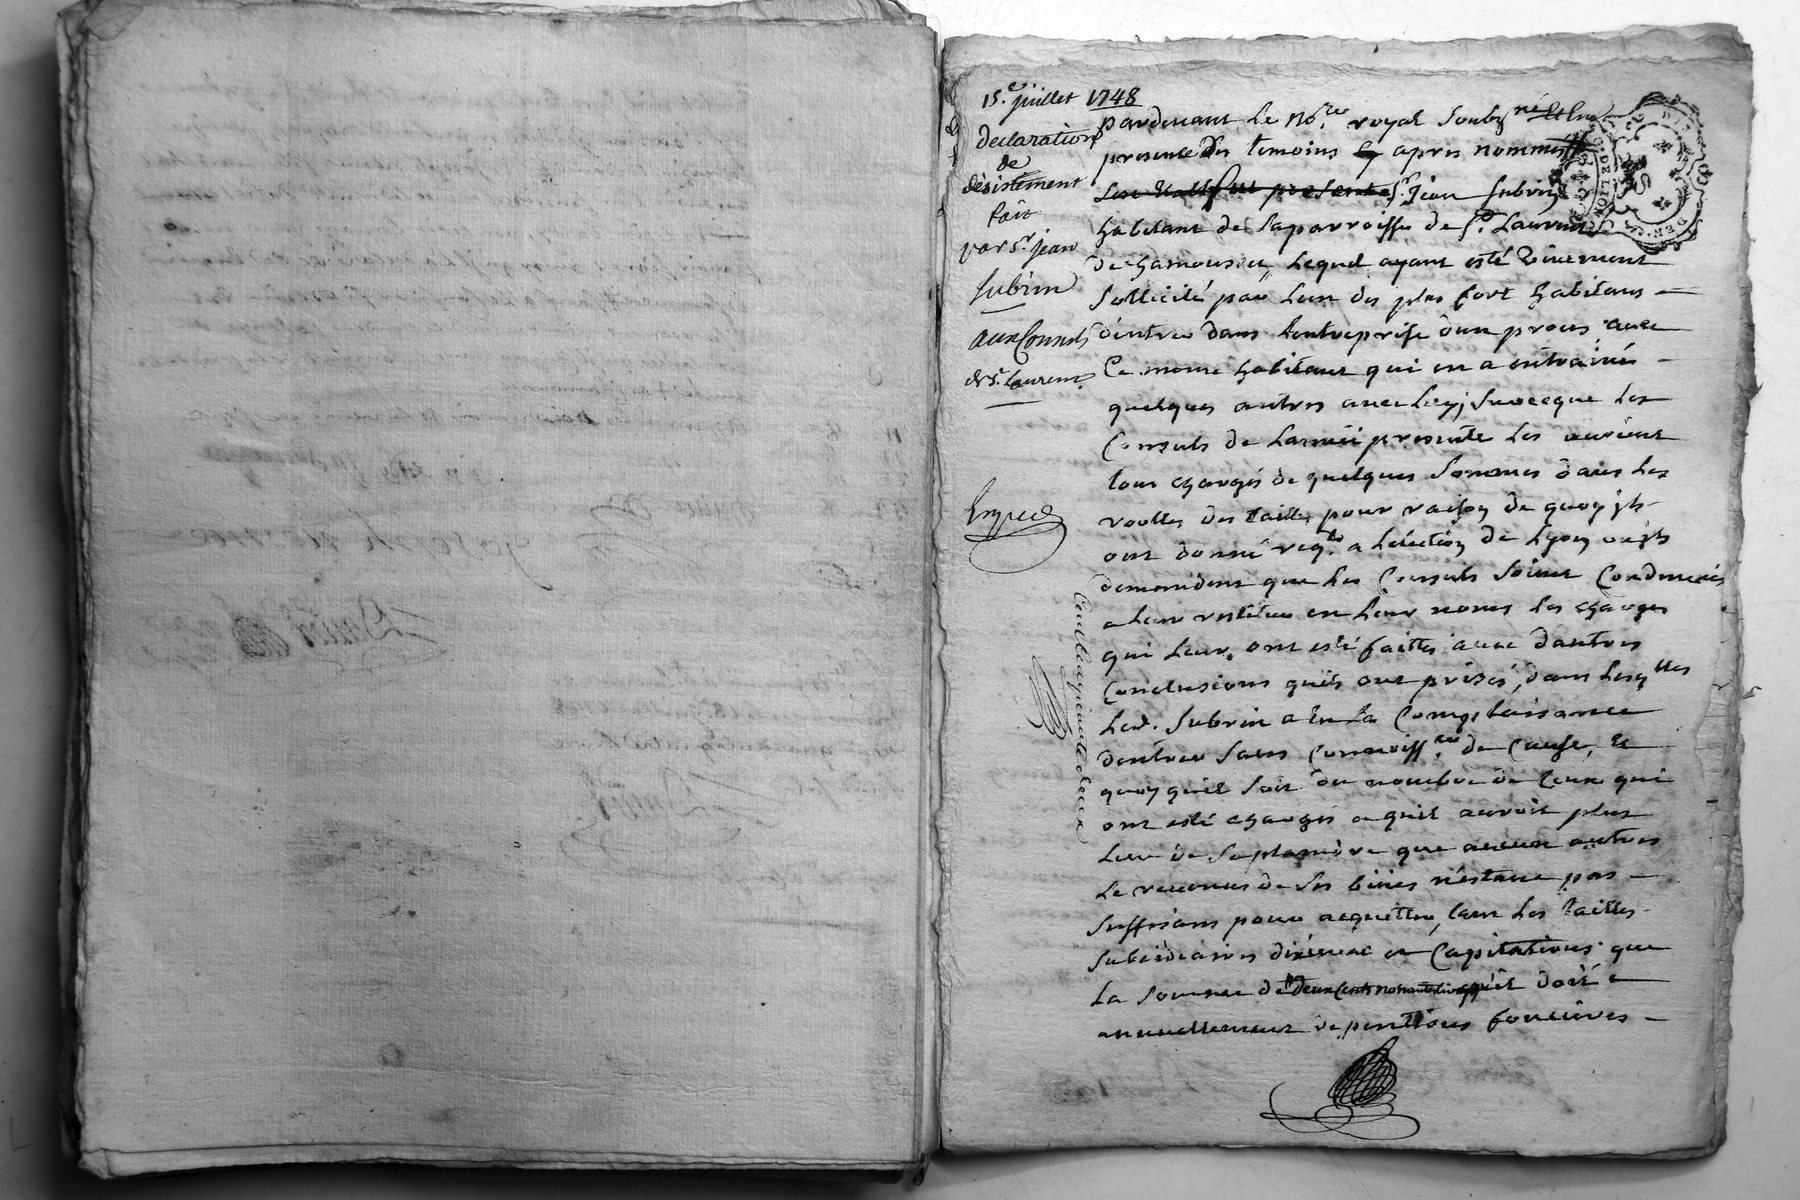 15.e juillet 1748
declaration
de
desistement
fait
par sr. jean
subrin
aux Consuls
de st. Laurent
Expedé
Cent cinquante deux
pardevant le no.re royal soubzne et en
presence des temoins apres nommés
sr. jean subrin
habitant de la parroisse de st. Laurent
de chamousset, lequel ayant esté vivement
sollicité par lun des plus fort habitans
dentrer dans lentreprise dun proces avec
Ce meme habitant qui en a entrainés
quelques autres avec luy, sur ce que les
Consuls de lannée presente les auroient
tous chargés de quelques sommes dans les
roolles des tailles pour raison de quoy jls
ont donné reqte a lelection de Lyon ou jls
demandent que les Consuls soient Condamnés
a leur restituer en leur noms les charges
qui leur ont esté faittes avec dautres
Conclusions quils ont prises, dans lesqlles
led. subrin a eu la Complaisance
dentrer sans Connoissce de Cause, et
quoy quil soit du nombre de ceux qui
ont esté chargés et quil auroit plus
lieu de se plaindre que aucun autres
le revenus de ses biens nestant pas
suffisans pour acquitter tant les tailles
subsidiaires dixieme et Capitations que
la somme de deux Cents nonante livres quil doit
annuellement de pentions foncieres